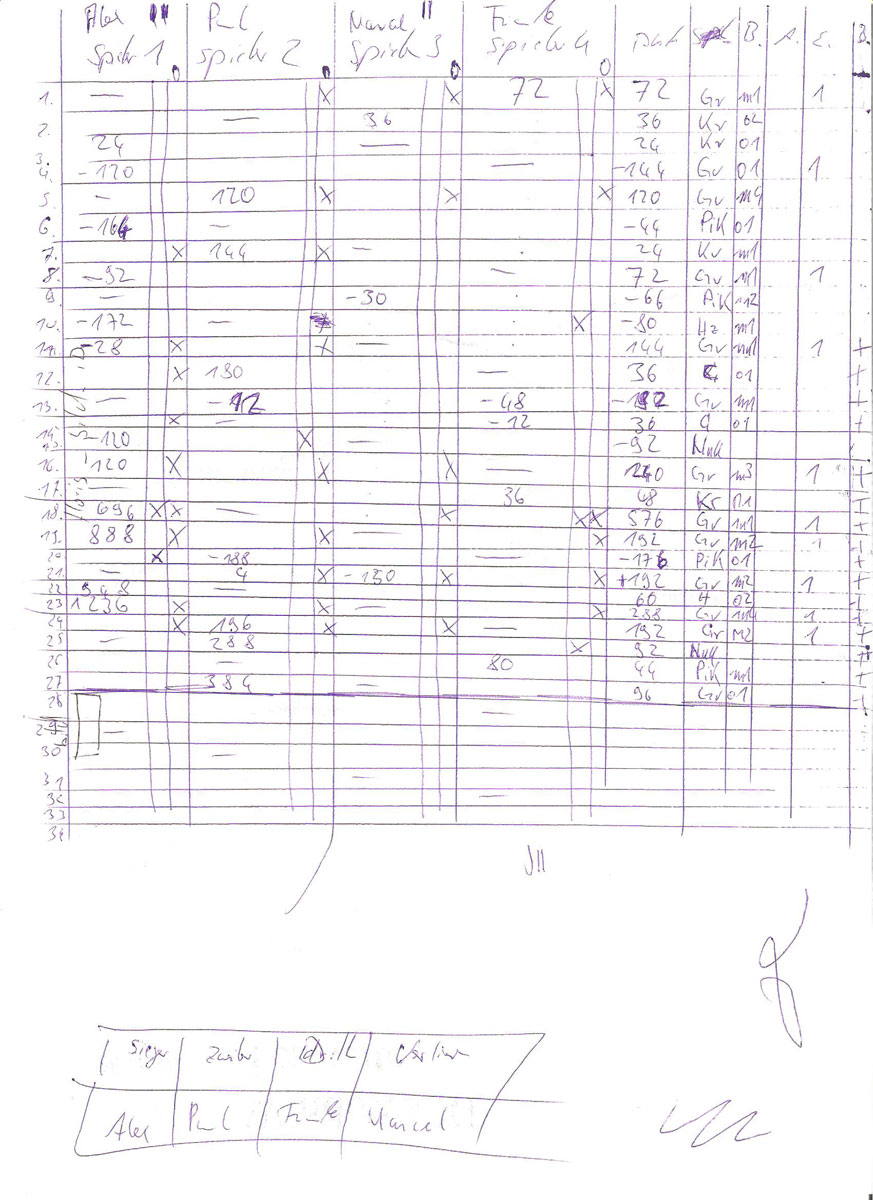 Alex Paul Marcel Funke
Spieler 1 Spieler 2 Spieler 3 Spieler 4 B. A. E. B.
1. — 72 72 Gr m1 1
2. — 36 36 Kr 02
3. 24 — 24 Kr 01
4. -120 — -144 Gr 01 1
5. — 120 120 Gr m4
6. — -44 Pik 01
7. 144 — 24 Kr m1
8. -92 — 72 Gr m1 1
9. — -30 -66 Pik
10. -172 — -80 Hz m1
-28 144 Gr 1
12. 180 — 36 01
13. — -48 Gr m1
— -12 36 01
-120 — -92 Null
16. 120 — Gr m3 1
17. — 36 48 Kr 01
18. 696 — 576 Gr m1 1
19. 888 — 192 Gr m2 1
20 — -188 Pik 01
21. — 4 -150 +192 Gr m2 1
22 948 — 60 H 02
23 1236 — 288 Gr m4 1
24 196 — 192 Gr m2 1
25 — 288 92 Null
26 — 80 44 Pik m1
27 384 — 96 Gr 01
28 —
29 —
30 —
31 —
32 —
33
34
Sieger Zweiter Dritter Verlierer
Alex Paul Funke Marcel